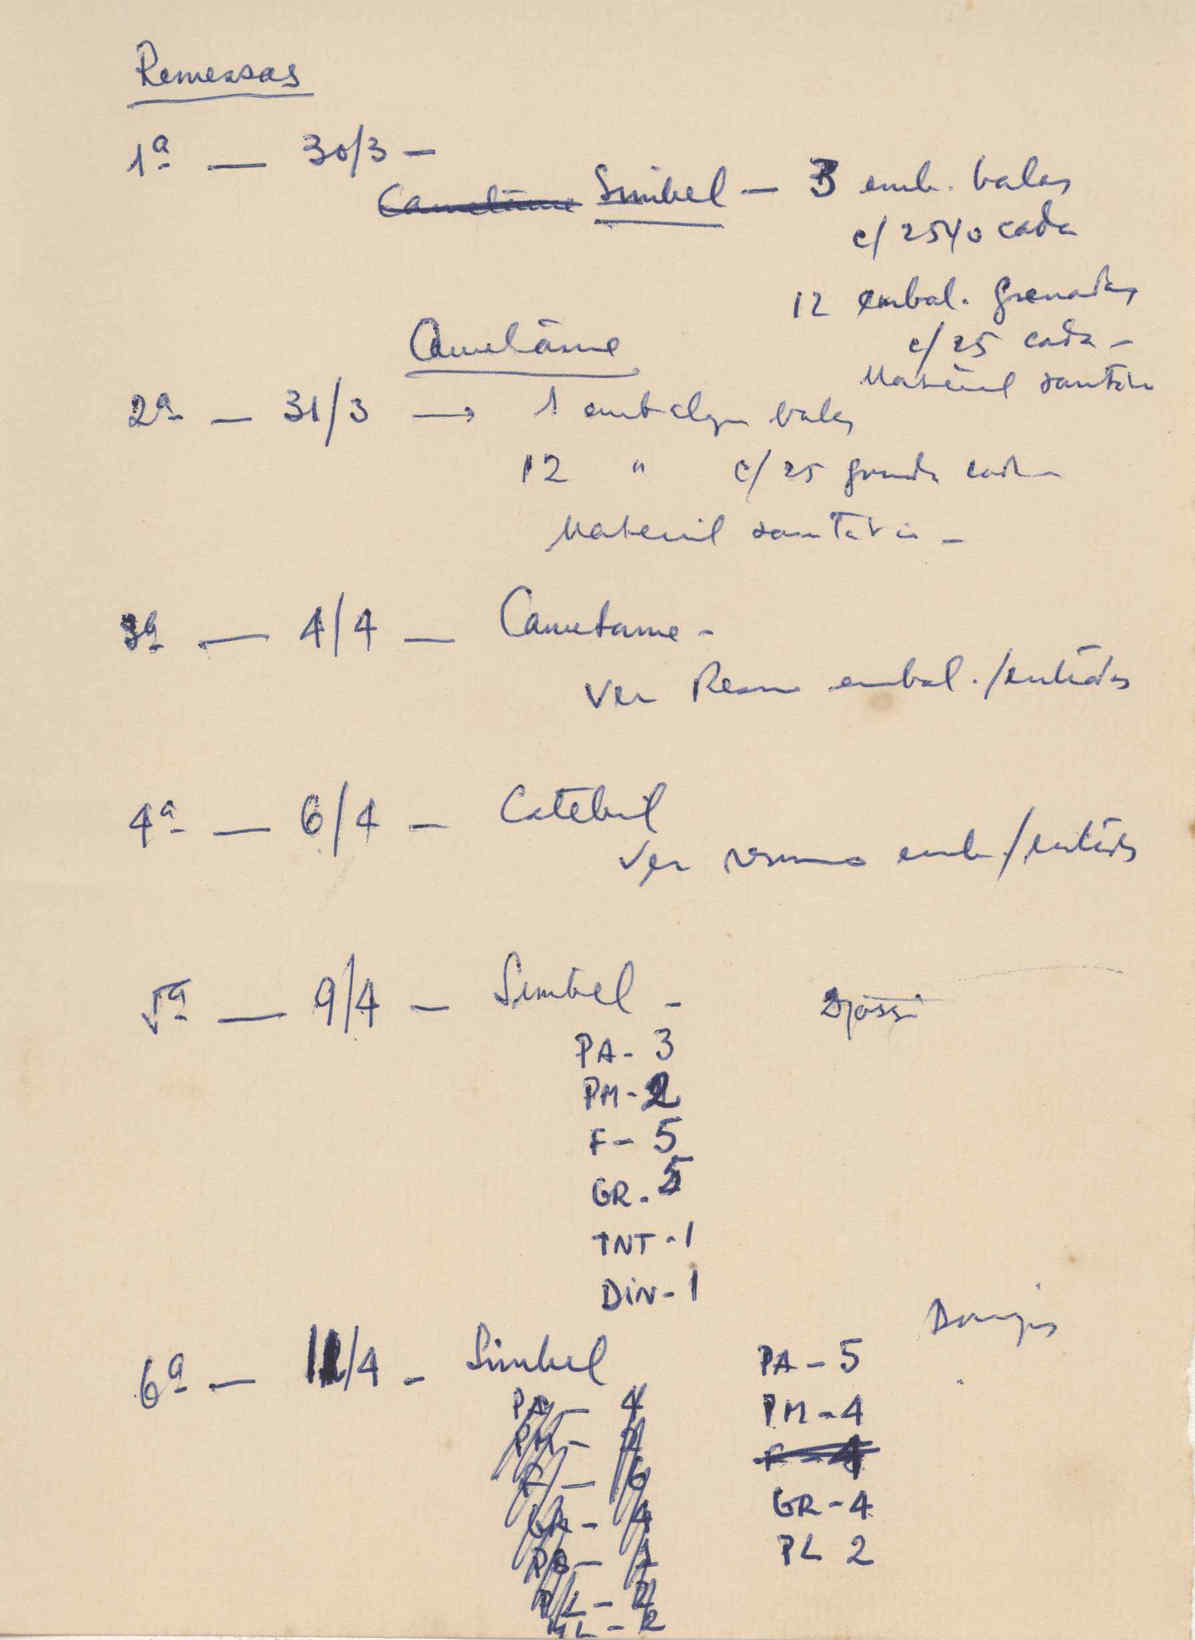 Remessas
1ª — 30/3 —
Cametâme Simbel — 3 emb. balas
c/ 2540 cada
12 embal. grenadas
c/25 cada —
Material sanitário
Cametâme
2ª — 31/3 → 1 embalagem balas
12 " c/ 25 grenadas cada
Material sanitário —
3ª — 4/4 — Cametame -
Ver Resumo embal./entradas
4ª — 6/4 — Catebuil
Ver resumo emb/entradas
5ª — 9/4 — Simbel - Djassi
PA - 3
PM - 2
F - 5
GR. 5
TNT - 1
DIN - 1
6ª — 11/4 - Simbel
PA - 4
PM - 2
F - 6
GR - 4
PL - 2
ML - 2
PA - 5
PM - 4
F - 4
GR - 4
PL 2